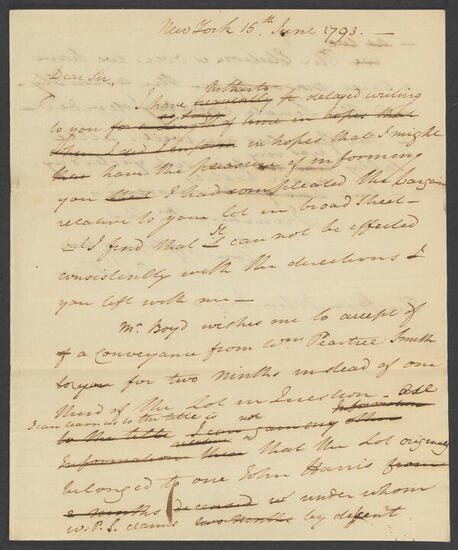 New York 15th June 1793.
Dear Sir,
hitherto
I have delayed writing
so long
to you for a length of time in hopes that
in hopes that I might
have the pleasure of informing
you that I had compleated the bargain
relative to your lot in broad Street –
but I find that It can not be effected
consistently with the directions
you left with me –
Mr. Boyd wishes me to accept of
a conveyance from Wm. Peartree Smith
to you for two Ninths instead of one
third of the Lot in Question – All
I can learn as to the title is not Information
to the title I can gain any other
Information than that the Lot originally
belonged to one John Harris from
deceased & under whom
W. P. S. claims two ninths by descent